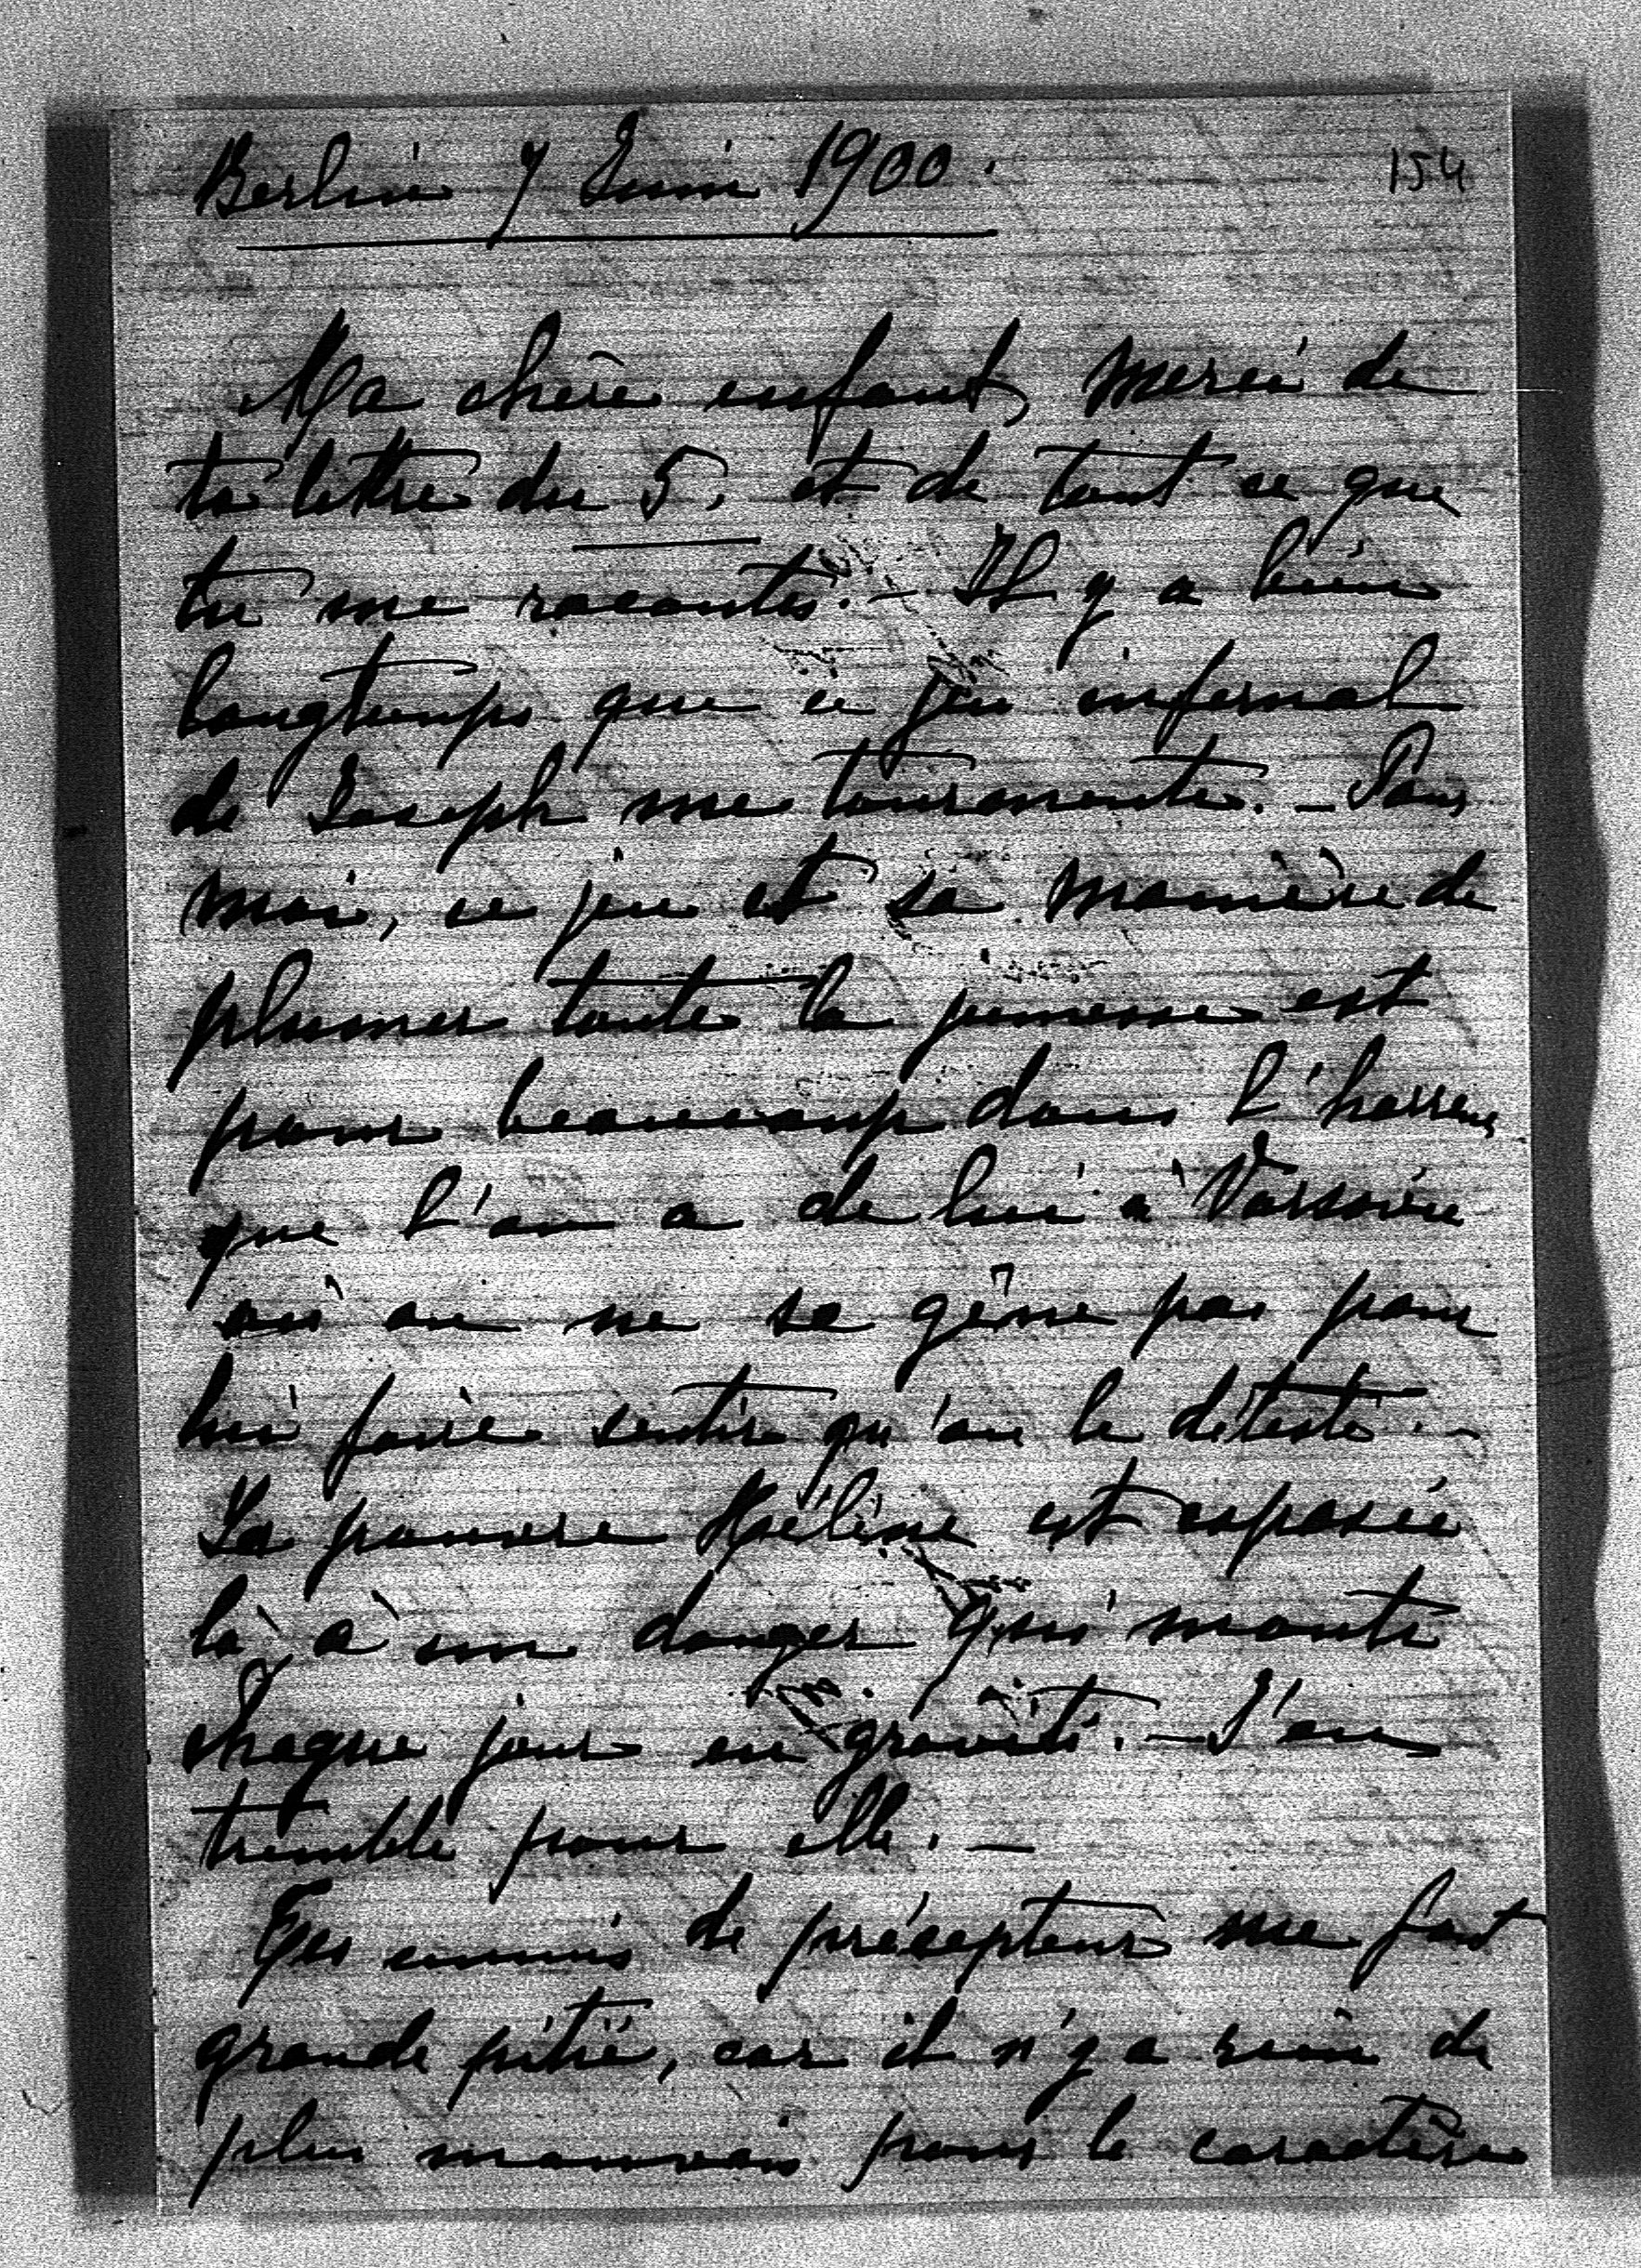 Berlin 7 Juin 1900.
154
Ma chère enfant, merci de
ta lettre du 5, et de tout ce que
tu me racontes. - Il y a bien
longtemps que ce jeu infernal
de Joseph me tourmente. - Pour
moi, ce jeu et sa manière de
plumer toute la jeunesse est
pour beaucoup dans l'horreur
que l'on a de lui à Varsovie
où on ne se gêne pas pour
lui faire sentir qu'on le déteste. -
La pauvre Hélène est exposée
là à un danger qui monte
chaque jour en gravité. - J'en
tremble pour elle. -
Tes ennuis de précepteur me font
grande pitié, car il n'y a rien de
plus mauvais pour le caractère